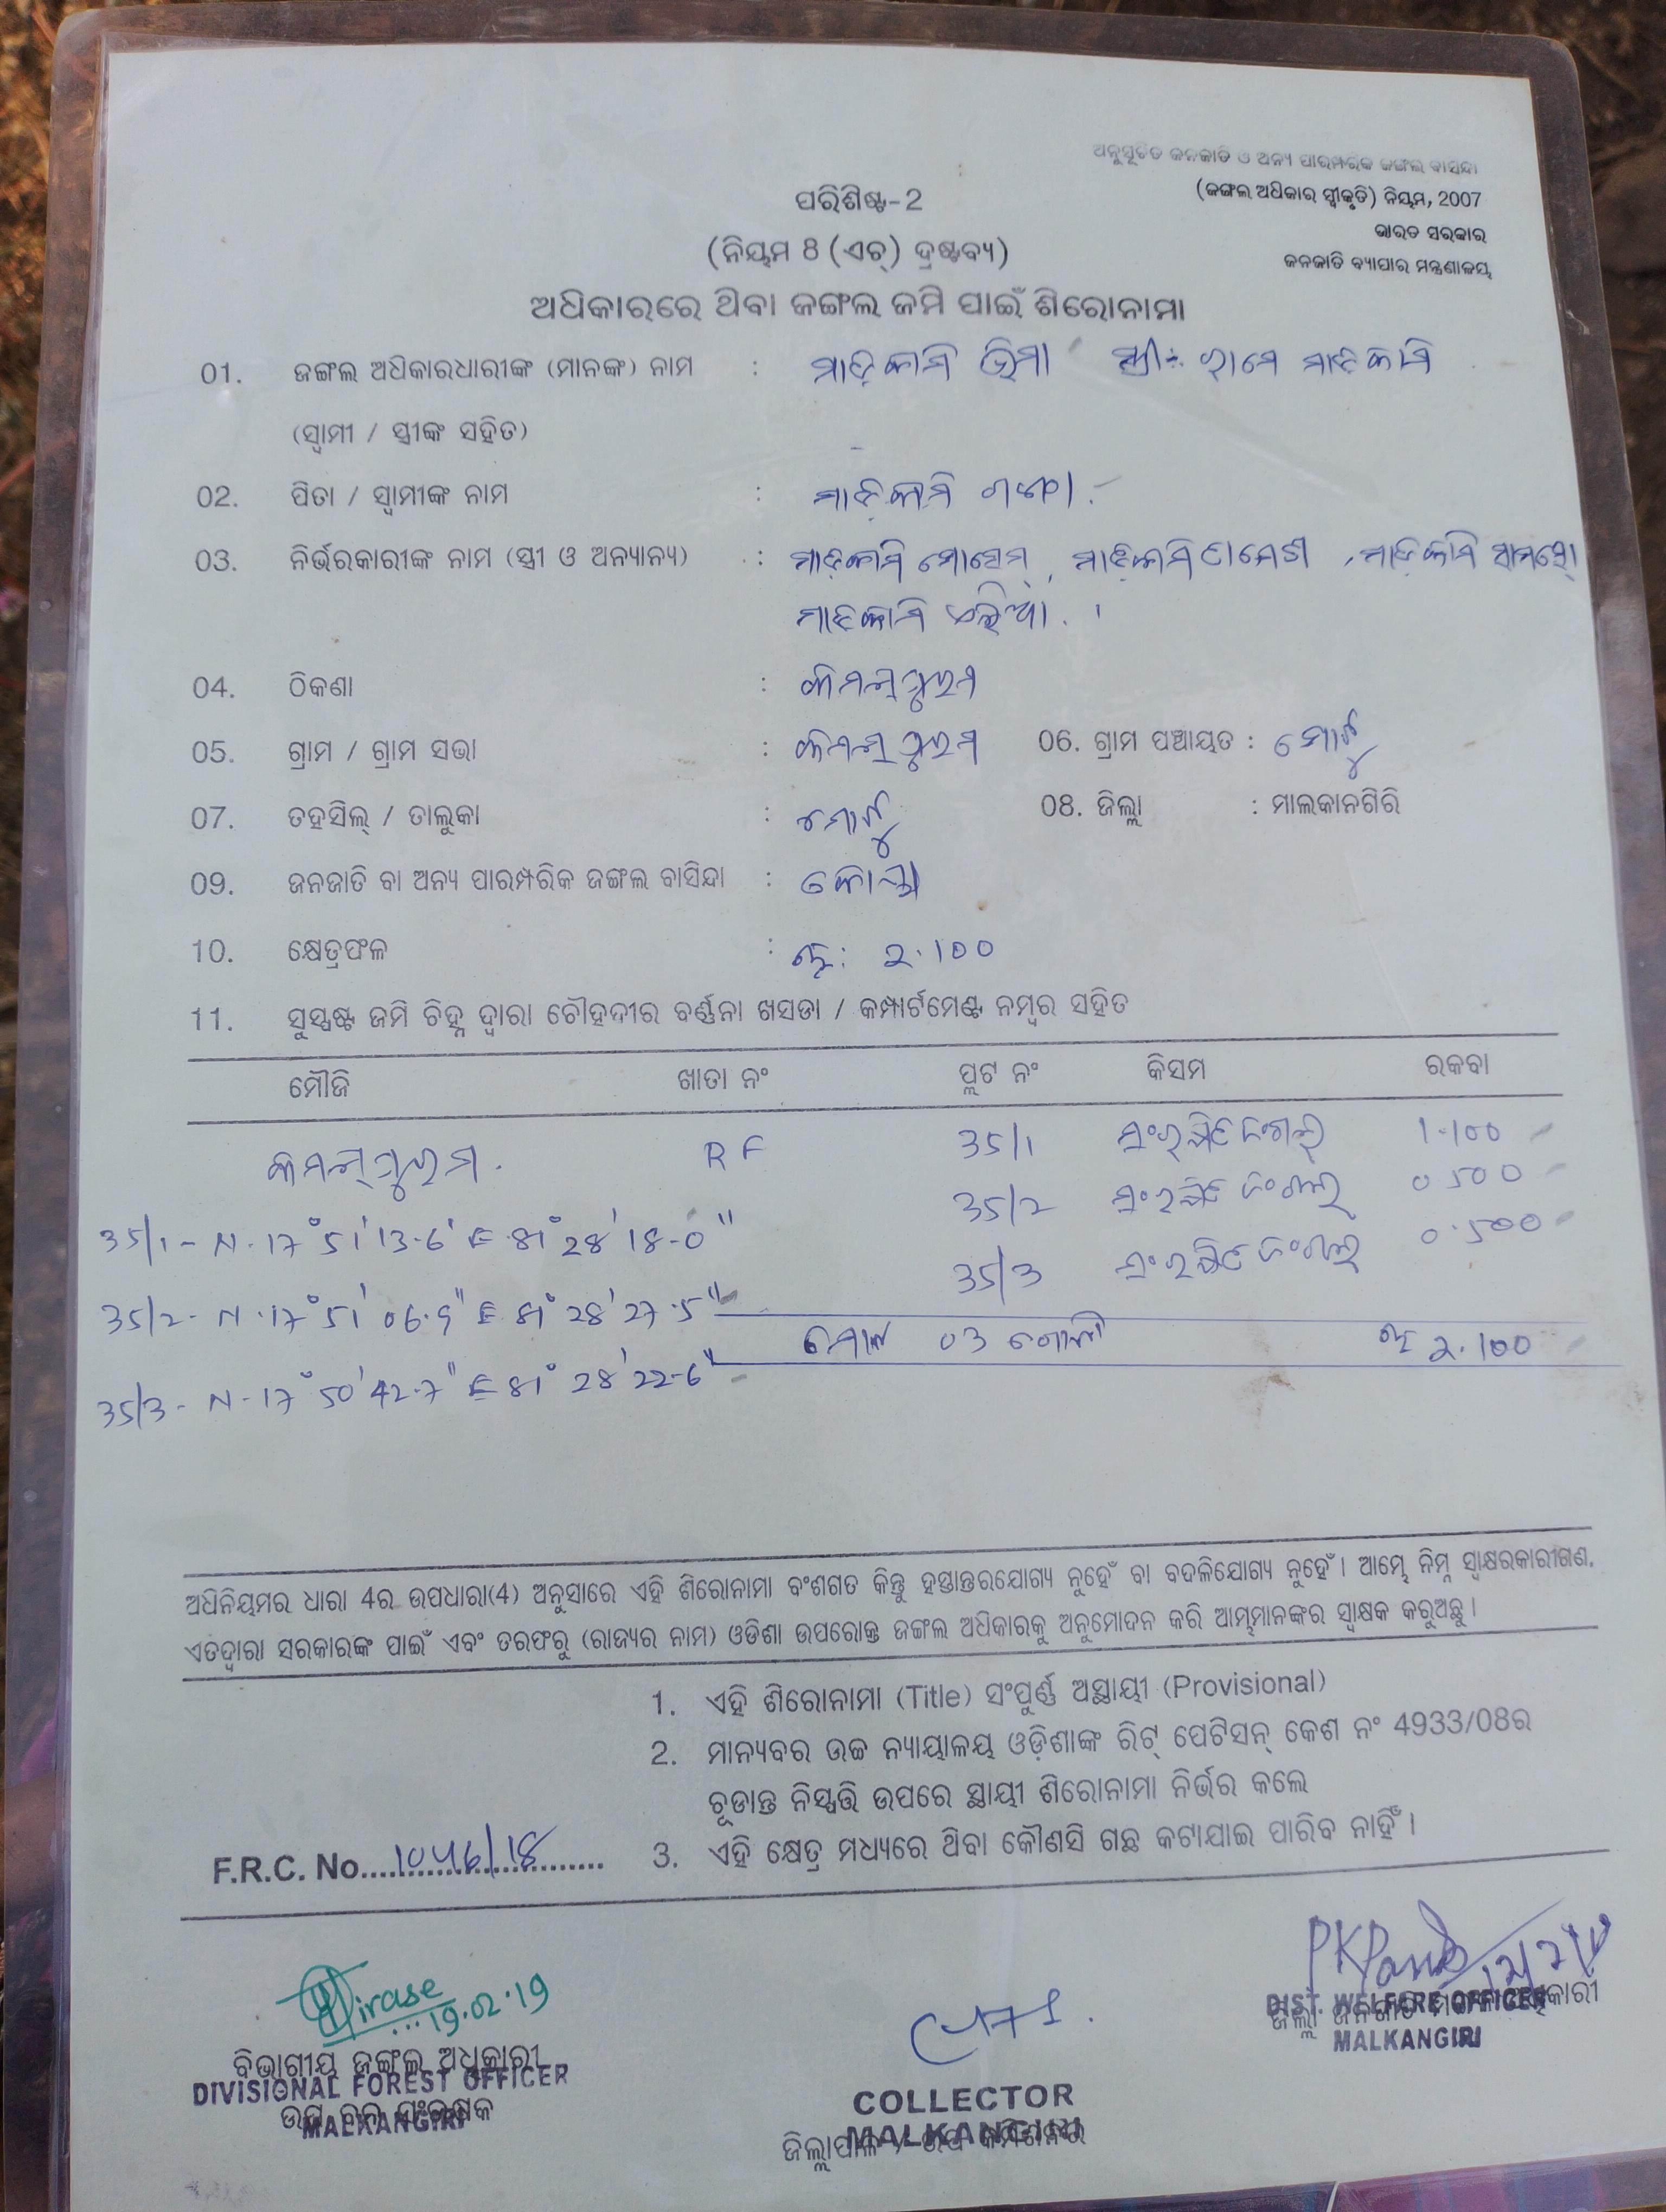 ଅନୁସୂଚିତ ଜନଜାତି ଓ ଅନ୍ୟ ପାରମ୍ପରିକ ଜଙ୍ଗଲ ବାସିନ୍ଦା
(ଜଙ୍ଗଲ ଅଧିକାର ସ୍ୱୀକୃତି) ନିୟମ, 2007
ଭାରତ ସରକାର
ଜନଜାତି ବ୍ୟାପାର ମନ୍ତ୍ରଣାଳୟ
ପରିଶିଷ୍ଟ-2
(ନିୟମ 8 (ଏଚ୍) ଦ୍ରଷ୍ଟବ୍ୟ)
ଅଧିକାରରେ ଥିବା ଜଙ୍ଗଲ ଜମି ପାଇଁ ଶିରୋନାମା
01. ଜଙ୍ଗଲ ଅଧିକାରଧାରୀଙ୍କ (ମାନଙ୍କ) ନାମ : ମାଡ଼କାମି ଭିମା ସ୍ତ୍ରୀ:- ରାମେ ମାଡ଼କାମି
(ସ୍ୱାମୀ / ସ୍ତ୍ରୀଙ୍କ ସହିତ)
02. ପିତା / ସ୍ୱାମୀଙ୍କ ନାମ : ମାଡ଼କାମି
03. ନିର୍ଭରକାରୀଙ୍କ ନାମ (ସ୍ତ୍ରୀ ଓ ଅନ୍ୟାନ୍ୟ) : ମାଡ଼କାମି ମାଡ଼କାମି , ମାଡ଼କାମି
ମାଡ଼କାମି
04. ଠିକଣା :
05. ଗ୍ରାମ / ଗ୍ରାମ ସଭା : 06. ଗ୍ରାମ ପଞ୍ଚାୟତ : ମୋଟୁ
07. ତହସିଲ୍ / ତାଲୁକା : ମୋଟୁ 08. ଜିଲ୍ଲା : ମାଲକାନଗିରି
09. ଜନଜାତି ବା ଅନ୍ୟ ପାରମ୍ପରିକ ଜଙ୍ଗଲ ବାସିନ୍ଦା : କୋୟା
10. କ୍ଷେତ୍ରଫଳ : ହେ: ୨.100
11. ସୁସ୍ପଷ୍ଟ ଜମି ଚିହ୍ନ ଦ୍ୱାରା ଚୌହଦୀର ବର୍ଣ୍ଣନା ଖସଡା / କମ୍ପାର୍ଟମେଣ୍ଟ ନମ୍ବର ସହିତ
ମୌଜି ଖାତା ନଂ ପ୍ଲଟ ନଂ କିସମ ରକବା
RF 35/1 ସଂରକ୍ଷିତ ଜଂଗଲ 1.100
35/2 ସଂରକ୍ଷିତ ଜଂଗଲ 0.500
35/3 ସଂରକ୍ଷିତ ଜଂଗଲ 0.500
35/1 - N-17°51'13.6' E 81°28'18.0"
35/2 - N-17°51'06.9" E 81°28'27.5"
35/3 - N-17°50'42.7" E 81°28'22.6"
ମୋଟ 03 ହେ ୨.100
ଅଧିନିୟମର ଧାରା 4ର ଉପଧାରା(4) ଅନୁସାରେ ଏହି ଶିରୋନାମା ବଂଶଗତ କିନ୍ତୁ ହସ୍ତାନ୍ତରଯୋଗ୍ୟ ନୁହେଁ ବା ବଦଳିଯୋଗ୍ୟ ନୁହେଁ। ଆମ୍ଭେ ନିମ୍ନ ସ୍ୱାକ୍ଷରକାରୀଗଣ,
ଏତଦ୍ୱାରା ସରକାରଙ୍କ ପାଇଁ ଏବଂ ତରଫରୁ (ରାଜ୍ୟର ନାମ) ଓଡିଶା ଉପରୋକ୍ତ ଜଙ୍ଗଲ ଅଧିକାରକୁ ଅନୁମୋଦନ କରି ଆମ୍ଭମାନଙ୍କର ସ୍ୱାକ୍ଷକ କରୁଅଛୁ।
1. ଏହି ଶିରୋନାମା (Title) ସଂପୁର୍ଣ୍ଣ ଅସ୍ଥାୟୀ (Provisional)
2. ମାନ୍ୟବର ଉଚ୍ଚ ନ୍ୟାୟାଳୟ ଓଡ଼ିଶାଙ୍କ ରିଟ୍ ପେଟିସନ୍ କେଶ ନଂ 4933/08ର
ଚୂଡାନ୍ତ ନିସ୍ପତ୍ତି ଉପରେ ସ୍ଥାୟୀ ଶିରୋନାମା ନିର୍ଭର କଲେ
3. ଏହି କ୍ଷେତ୍ର ମଧ୍ୟରେ ଥିବା କୌଣସି ଗଛ କଟାଯାଇ ପାରିବ ନାହିଁ।
F.R.C. No. 1046/18
19.02.19
ବିଭାଗୀୟ ଜଙ୍ଗଲ ଅଧିକାରୀ
DIVISIONAL FOREST OFFICER
ଉପ ବନ ସଂରକ୍ଷକ
MALKANGIRI
COLLECTOR
MALKANGIRI
ଜିଲ୍ଲାପାଳ / ଉପ କମିଶନର
DIST. WELFARE OFFICER
ଜିଲ୍ଲା ଜନଜାତି ମଙ୍ଗଳ ଅଧିକାରୀ
MALKANGIRI